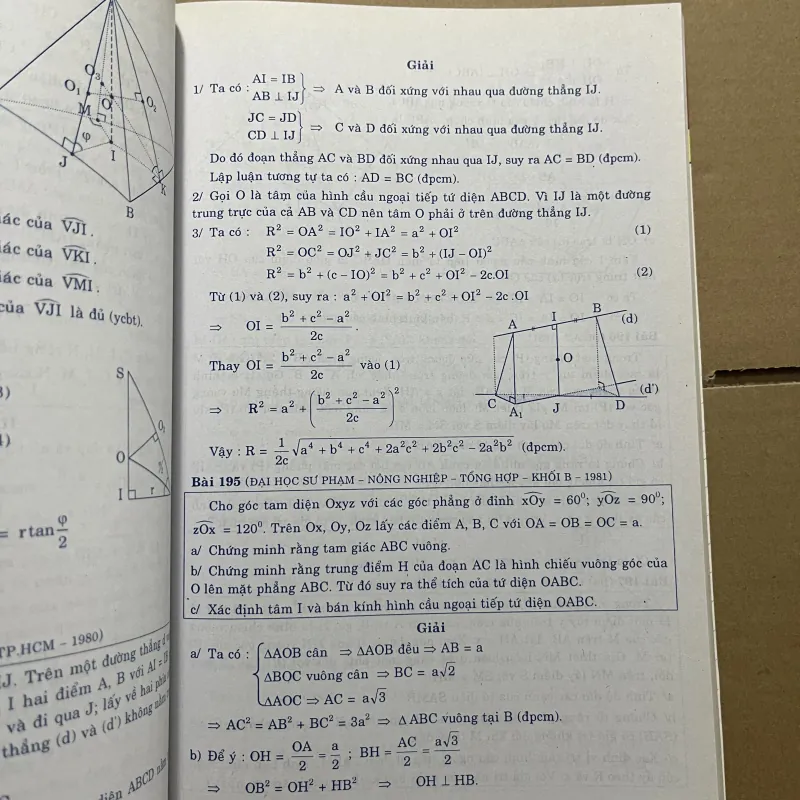 O₁
O₃
M
O
O₂
φ
J
I
K
B
ác của VJI.
ác của VKI.
ác của VMI.
của VJI là đủ (ycbt).
S
O
I
r
= rtan φ/2
TP.HCM – 1980)
J. Trên một đường thẳng d
I hai điểm A, B với AI = IB
và đi qua J; lấy về hai phía
thẳng (d) và (d') không
diện ABCD
Giải
1/ Ta có : AI = IB
AB ⊥ IJ } ⇒ A và B đối xứng với nhau qua đường thẳng IJ.
JC = JD
CD ⊥ IJ } ⇒ C và D đối xứng với nhau qua đường thẳng IJ.
Do đó đoạn thẳng AC và BD đối xứng nhau qua IJ, suy ra AC = BD (đpcm).
Lập luận tương tự ta có : AD = BC (đpcm).
2/ Gọi O là tâm của hình cầu ngoại tiếp tứ diện ABCD. Vì IJ là một đường
trung trực của cả AB và CD nên tâm O phải ở trên đường thẳng IJ.
3/ Ta có : R² = OA² = IO² + IA² = a² + OI² (1)
R² = OC² = OJ² + JC² = b² + (IJ – OI)²
R² = b² + (c – IO)² = b² + c² + OI² – 2c.OI (2)
Từ (1) và (2), suy ra : a² + OI² = b² + c² + OI² – 2c .OI
⇒ OI = (b² + c² – a²)/2c .
Thay OI = (b² + c² – a²)/2c vào (1)
⇒ R² = a² + ((b² + c² – a²)/2c)²
A I B (d)
O
(d')
C A₁ J D
Vậy : R = 1/2c √(a⁴ + b⁴ + c⁴ + 2a²c² + 2b²c² – 2a²b²) (đpcm).
Bài 195 (ĐẠI HỌC SƯ PHẠM – NÔNG NGHIỆP – TỔNG HỢP – KHỐI B – 1981)
Cho góc tam diện Oxyz với các góc phẳng ở đỉnh xOy = 60⁰; yOz = 90⁰;
zOx = 120⁰. Trên Ox, Oy, Oz lấy các điểm A, B, C với OA = OB = OC = a.
a/ Chứng minh rằng tam giác ABC vuông.
b/ Chứng minh rằng trung điểm H của đoạn AC là hình chiếu vuông góc của
O lên mặt phẳng ABC. Từ đó suy ra thể tích của tứ diện OABC.
c/ Xác định tâm I và bán kính hình cầu ngoại tiếp tứ diện OABC.
Giải
a/ Ta có : { ΔAOB cân ⇒ ΔAOB đều ⇒ AB = a
ΔBOC vuông cân ⇒ BC = a√2
ΔAOC ⇒ AC = a√3
⇒ AC² = AB² + BC² = 3a² ⇒ Δ ABC vuông tại B (đpcm).
b) Để ý : OH = OA/2 = a/2 ; BH = AC/2 = a√3/2
⇒ OB² = OH² + HB² ⇒ OH ⊥ HB.